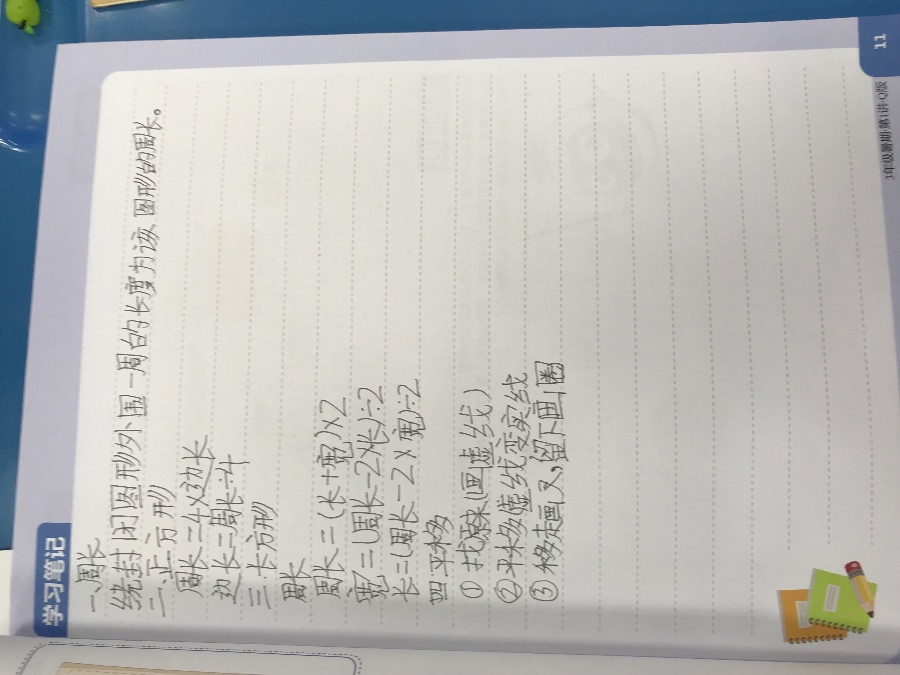 学习笔记
一、周长
绕封闭图形外围一周的长度为该图形的周长。
二、正方形
周长=4×边长
边长=周长÷4
三长方形
周长
周长=(长+宽)×2
宽=(周长-2×长)÷2
长=(周长-2×宽)÷2
四平移
①找原来(画虚线)
②平移虚线变实线
③移走画叉,留下画圈
3年级暑期·第1讲·Q版
11